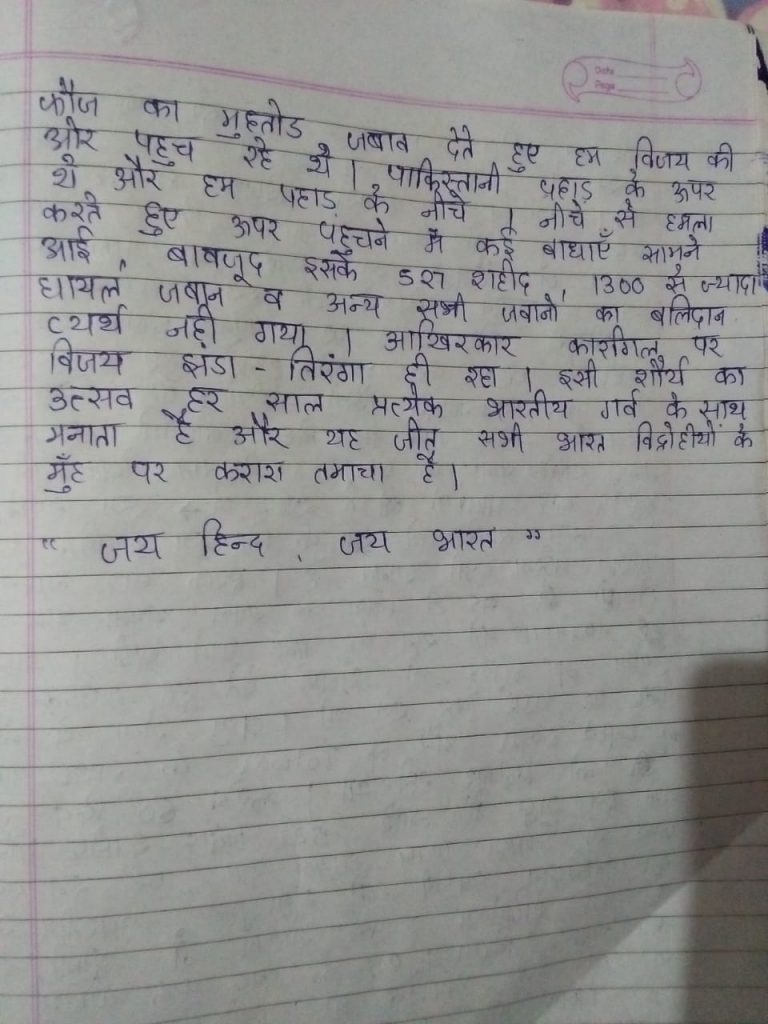 Date
Page
फौज का मुहतोड जबाव देते हुए हम विजय की
ओर पहुच रहे थे। पाकिस्तानी पहाड के ऊपर
थे और हम पहाड के नीचे। नीचे से हमला
करते हुए ऊपर पहुचने में कई बाधाएँ सामने
आई, बावजूद इसके 527 शहीद, 1300 से ज्यादा
घायल जबान व अन्य सभी जवानो का बलिदान
व्यर्थ नही गया। आखिरकार कारगिल पर
विजय झंडा - तिरंगा ही रहा। इसी शौर्य का
उत्सव हर साल प्रत्येक भारतीय गर्व के साथ
मनाता है और यह जीत सभी भारत विद्रोहीयों के
मुँह पर करारा तमाचा है।
“ जय हिन्द, जय भारत ”